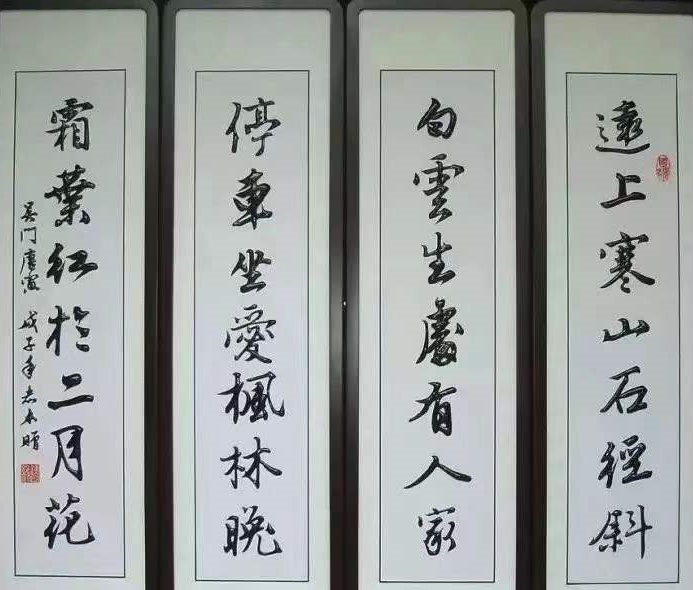 遠上寒山石經斜
白雲生處有人家
停車坐愛楓林晚
霜葉紅於二月花
吴门唐寅 戊子年